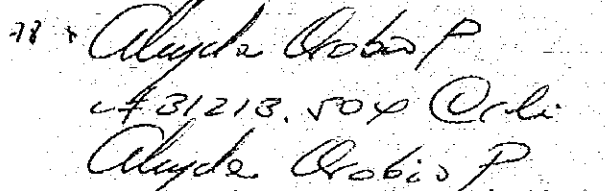 78 Aleyda Orobio P
#31213.504 Cali
Aleyda Orobio P